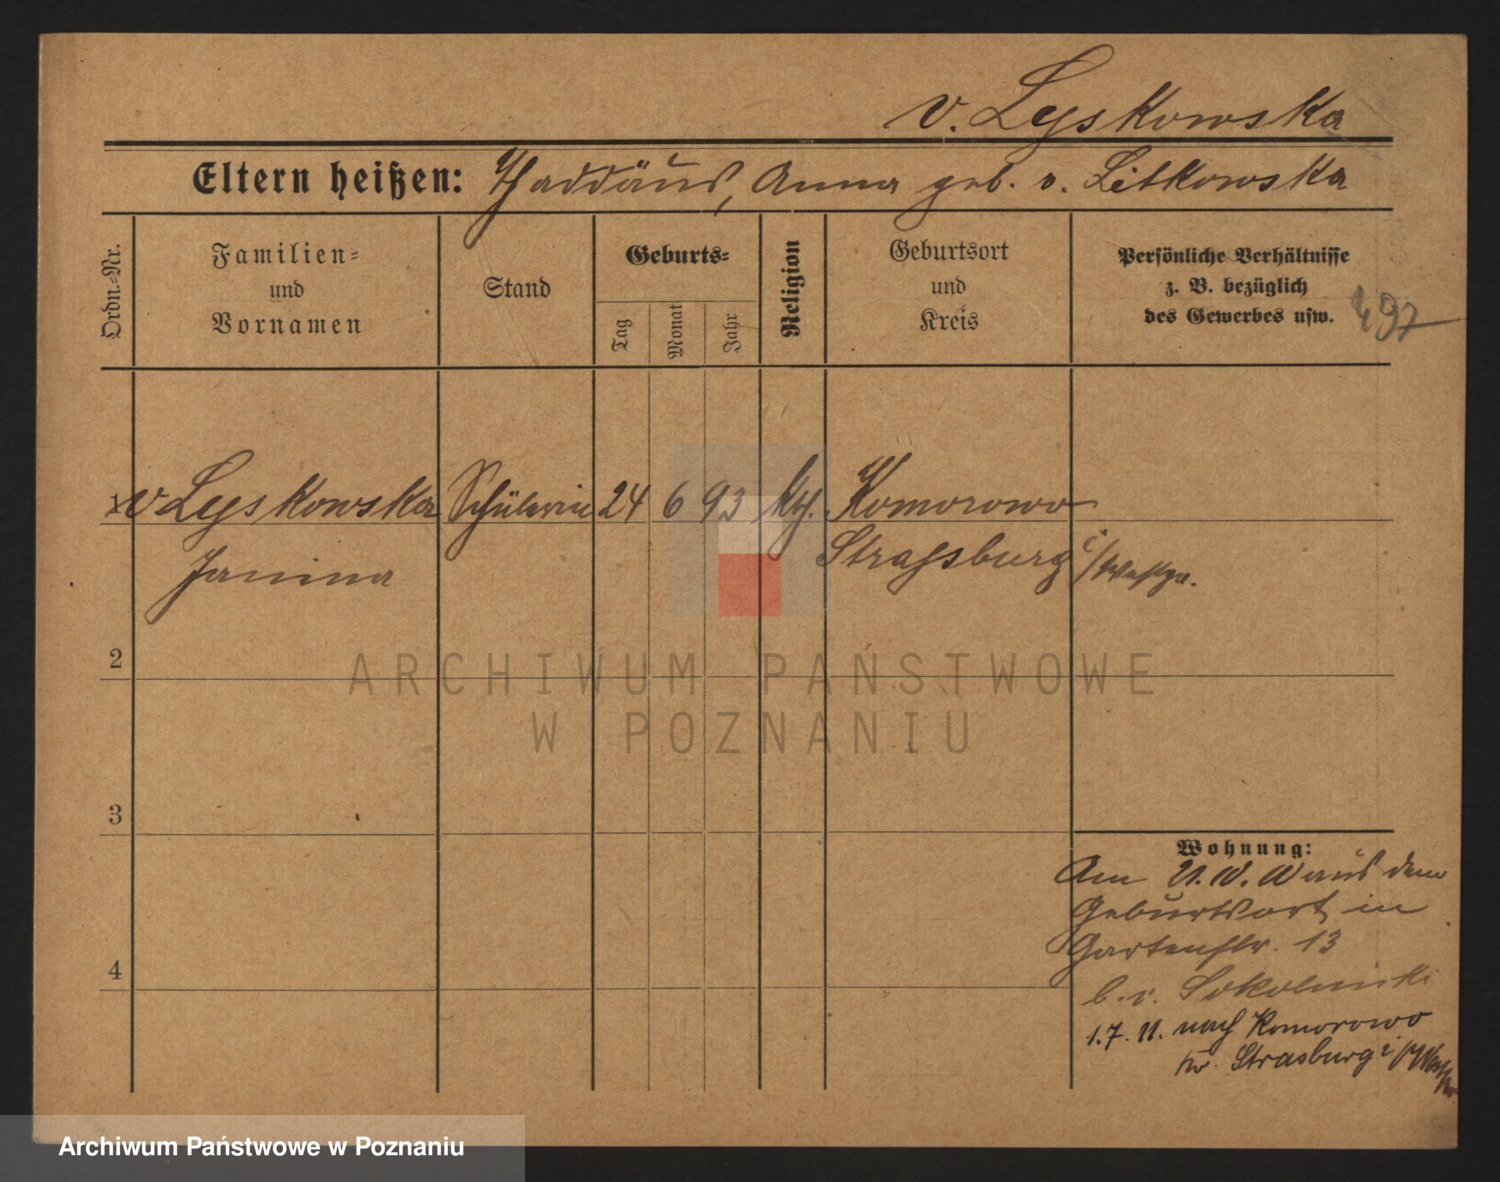 v. Lyskowska
Eltern heißen: Thaddäus, Anna geb. v. Litkowska
Ordn.-Nr.
Familien-
und
Vornamen
Stand
Geburts-
Tag
Monat
Jahr
Religion
Geburtsort
und
Kreis
Persönliche Verhältnisse
z. B. bezüglich
des Gewerbes usw.
497
1 v Lyskowska Schülerin 24 6 93 kth. Komorowo
Janina
Straßburg i/Westpr.
2
ARCHIWUM PAŃSTWOWE
W POZNANIU
3
4
Wohnung:
Am aus dem
Geburtsort in
Gartenstr. 13
b. v.
1.7.11. nach Komorowo
Kr. Strasburg i/Westpr
Archiwum Państwowe w Poznaniu